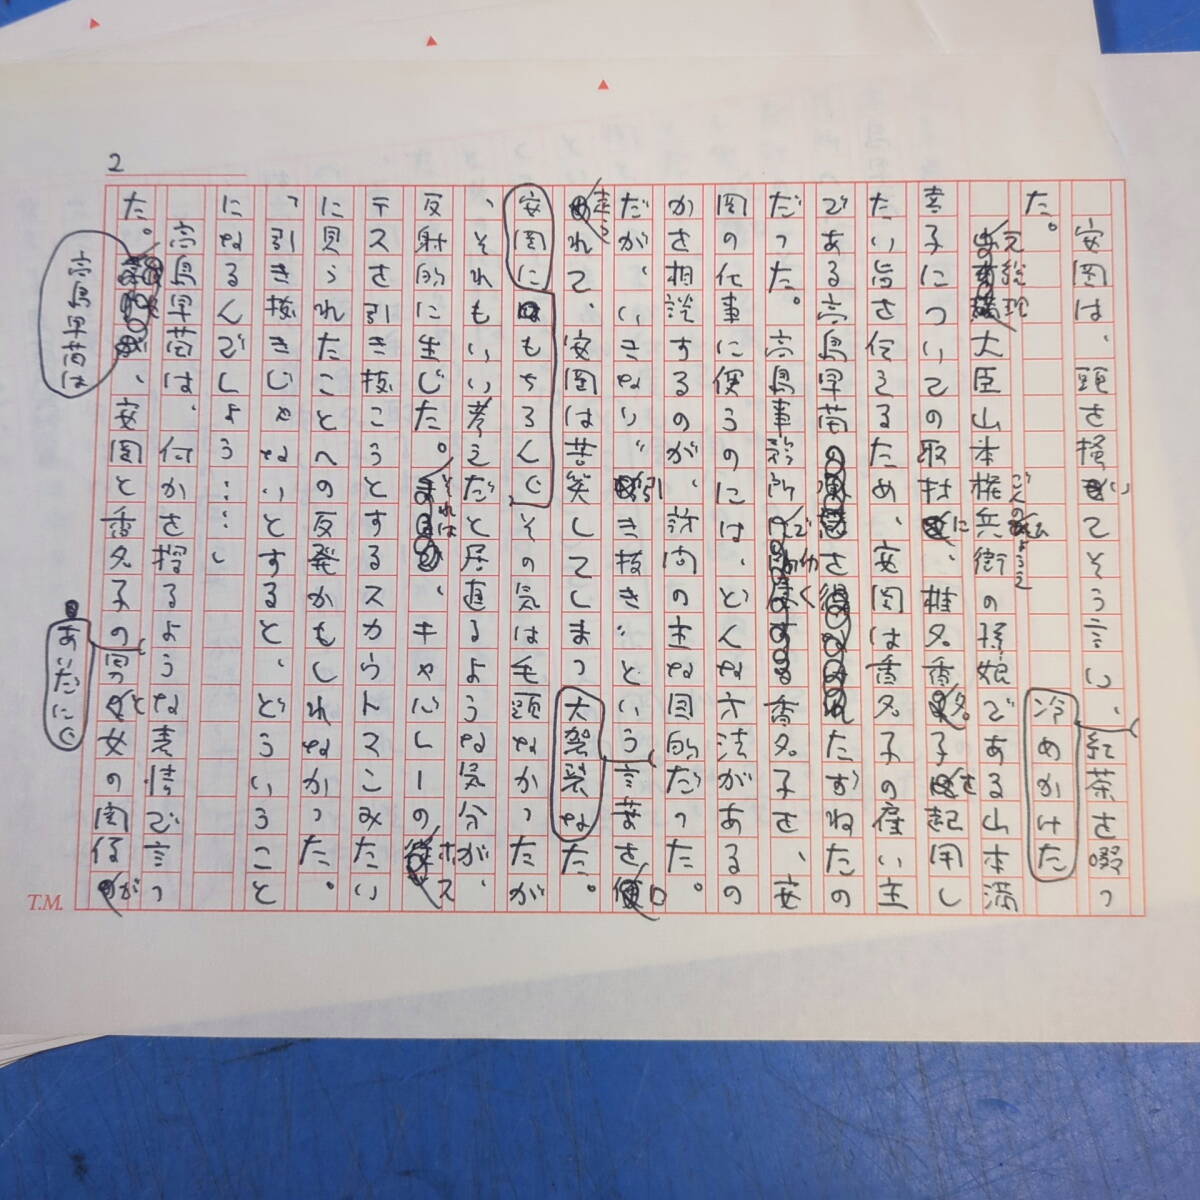 2
安岡は、頭を掻いてそう言い、冷めかけた紅茶を啜っ
た。
元総理大臣山本権兵衛の孫娘である山本満
ごんのひょうえ
喜子についての取材に、椎名香名子を起用し
たい旨を伝えるため、安岡は香名子の雇い主
である高島早苗をたずねたの
だった。高島事務所で香名子を、安
岡の仕事に使うのには、どんな方法があるの
かを相談するのが、訪問の主な目的だった。
だが、いきなり〝引き抜き〟という大袈裟な言葉を口
走られて、安岡は苦笑してしまった。
安岡にはもちろん、その気は毛頭なかったが
、それもいい考えだと居直るような気分が、
反射的に生じた。それは、キャシーのホス
テスを引き抜こうとするスカウトマスこみたい
に見られたことへの反発かもしれなかった。
、引き抜きじゃないとすると、どういうこと
になるんでしょう……」
高島早苗は、何かを探るような表情で言っ
た。高島早苗は、安岡と香名子のあいだに男と女の関係が
T.M.